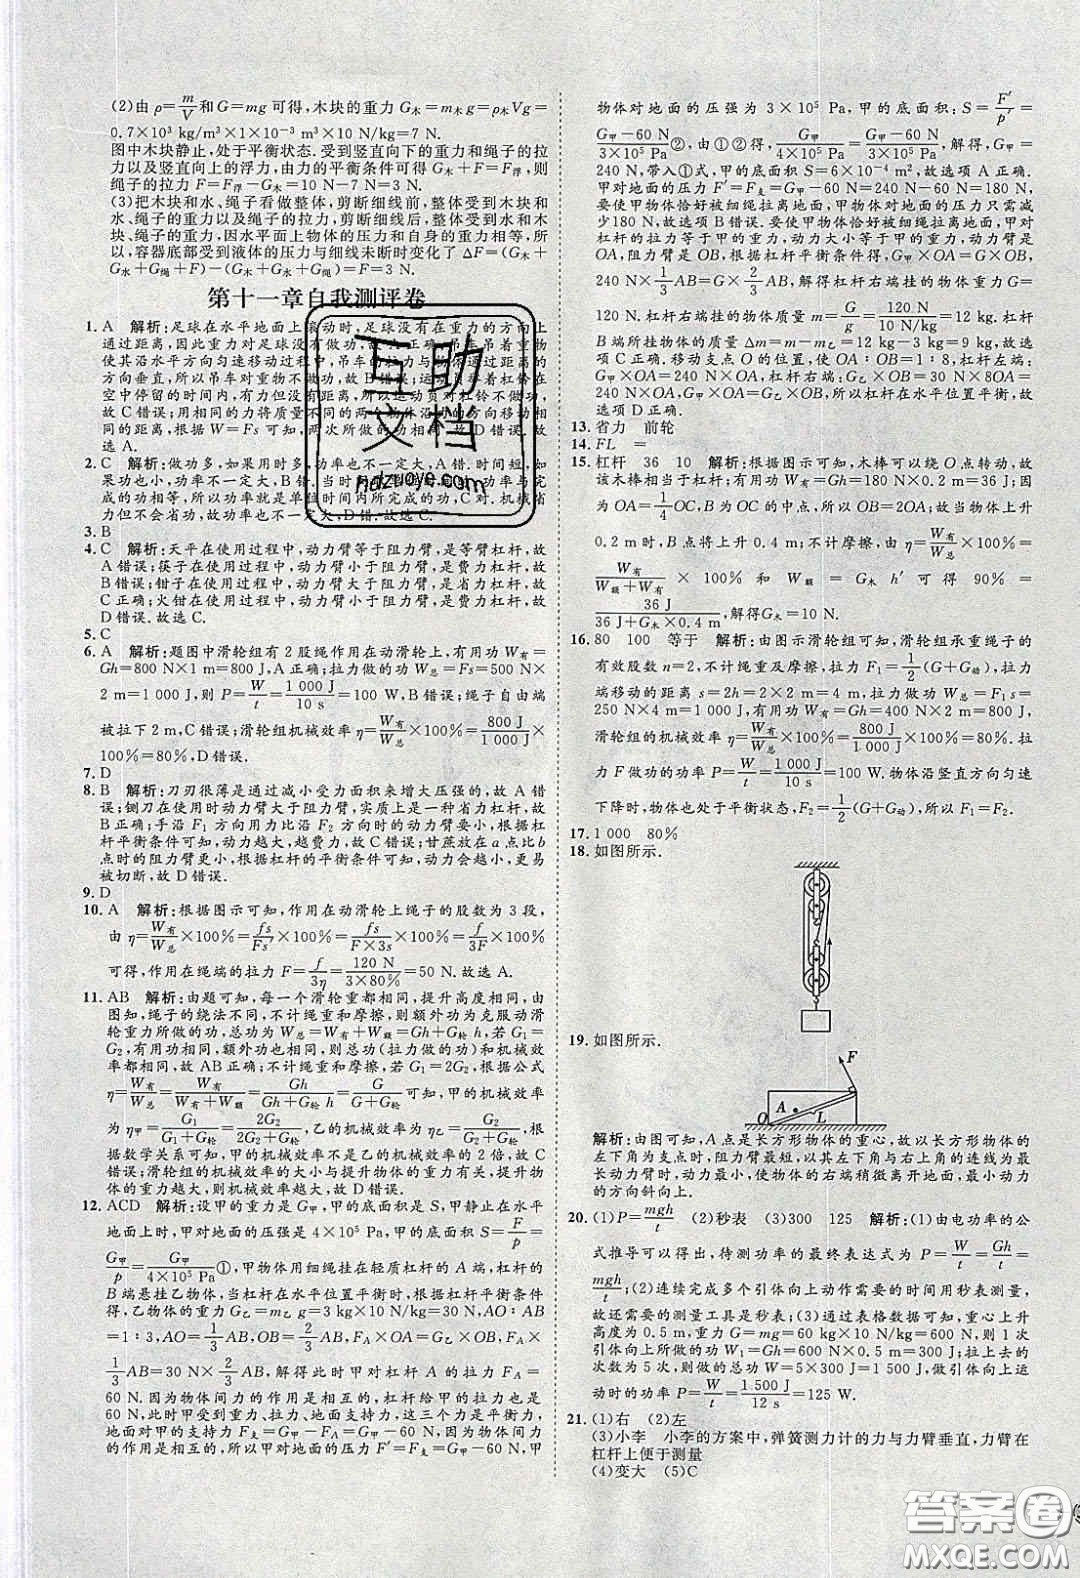 (2)由 ρ=m/V 和 G=mg 可得,木块的重力 G木=m木g=ρ木Vg=
0.7×10³ kg/m³×1×10⁻³ m³×10 N/kg=7 N.
图中木块静止,处于平衡状态.受到竖直向下的重力和绳子的拉
力以及竖直向上的浮力,由力的平衡条件可得 G木+F=F浮,则
绳子的拉力 F=F浮-G木=10 N-7 N=3 N.
(3)把木块和水、绳子看做整体,剪断细线前,整体受到木块和
水、绳子的重力以及绳子的拉力,剪断细线后,整体受到水和木
块、绳子的重力,因水平面上物体的压力和自身的重力相等,所
以,容器底部受到液体的压力与细线未断时变化了 ΔF=(G木+
G水+G绳+F)-(G木+G水+G绳)=F=3 N.
第十一章自我测评卷
1. A 解析:足球在水平地面上滚动时,足球没有在重力的方向上
通过距离,所以足球的重力没有做功,故 A 正确;吊车吊着重物
使其沿水平方向匀速移动过程中,吊车的拉力与移动距离的
方向垂直,所以吊车对重物不做功,故 B 错误;运动员举着杠铃在
空中停留的时间内,有力但没有距离,所以运动员对杠铃不做功,
故 C 错误;用相同的力将质量不同的两个物体沿力的方向移动相
同的距离,根据 W=Fs 可知,两次所做的功相同,故 D 错误.故
选 A.
2. C 解析:做功多,如果用时多,功率也不一定大,A 错.时间短,如
果功也小,
完成的功相
力但不会省功,功率也不一定大,D 错.故选 C.
3. B
4. C 解析:天平在使用过程中,动力臂等于阻力臂,是等臂杠杆,故
A 错误;筷子在使用过程中,动力臂小于阻力臂,是费力杠杆,故
B 错误;钳子在使用过程中,动力臂大于阻力臂,是省力杠杆,故
C 正确;火钳在使用过程中,动力臂小于阻力臂,是费力杠杆,故
D 错误.故选 C.
5. C
6. A 解析:题图中滑轮组有 2 股绳作用在动滑轮上,有用功 W有=
Gh=800 N×1 m=800 J,A 正确;拉力做的总功 W总=Fs=500 N×
2 m=1 000 J,则 P=W/t=1 000 J/10 s=100 W,B 错误;绳子自由端
被拉下 2 m,C 错误;滑轮组机械效率 η=W有/W总×100%=800 J/1 000 J×
100%=80%,D 错误.
7. D
8. B 解析:刀刃很薄是通过减小受力面积来增大压强的,故 A 错
误;铡刀在使用时动力臂大于阻力臂,实质上是一种省力杠杆,故
B 正确;手沿 F₁ 方向用力比沿 F₂ 方向的动力臂要小,根据杠
杆平衡条件可知,动力越大,越费力,故 C 错误;甘蔗放在 a 点比 b
点时的阻力臂更小,根据杠杆的平衡条件可知,动力会越小,更易
被切断,故 D 错误.
9. D
10. A 解析:根据图示可知,作用在动滑轮上绳子的股数为 3 段,
由 η=W有/W总×100%=fs/Fs′×100%=fs/F×3s×100%=f/3F×100%
可得,作用在绳端的拉力 F=f/3η=120 N/3×80%=50 N.故选 A.
11. AB 解析:由题可知,每一个滑轮重都相同,提升高度相同,由
图知,绳子的绕法不同,不计绳重和摩擦,则额外功为克服动滑
轮重力所做的功,总功为 W总=W有+W额=Gh+G轮 h.若 G₁=
G₂,有用功相同,额外功也相同,所以总功(拉力做的功)和机械
效率也相同,故 AB 正确;不计绳重和摩擦,若 G₁=2G₂,根据公式
η=W有/W总=W有/W有+W额=Gh/Gh+G轮 h=G/G+G轮可知,甲的机械效率
为 η甲=G₁/G₁+G轮=2G₂/2G₂+G轮,乙的机械效率为 η乙=G₂/G₂+G轮,根
据数学关系可知,甲的机械效率不是乙的机械效率的 2 倍,故 C
错误;滑轮组的机械效率的大小与提升物体的重力有关,提升物
体的重力越大,则机械效率越大,故 D 错误.
12. ACD 解析:设甲的重力是 G甲,甲的底面积是 S,甲静止在水平
地面上时,甲对地面的压强是 4×10⁵ Pa,甲的底面积 S=F/p=
G甲/p=G甲/4×10⁵ Pa①,甲物体用细绳挂在轻质杠杆的 A 端,杠杆的
B 端悬挂乙物体,当杠杆在水平位置平衡时,根据杠杆平衡条件
得,乙物体的重力 G乙=m乙g=3 kg×10 N/kg=30 N,AO∶OB
=1∶3,AO=1/3 AB,OB=2/3 AB,根据杠杆平衡条件,FA×OA=G乙×OB,FA×
1/3 AB=30 N×2/3 AB,解得此时甲对杠杆的拉力 FA=
60 N,因为物体间力的作用是相互的,杠杆给甲的拉力也是
60 N,此时甲受到重力、拉力、地面支持力,这三个力是平衡力,
地面对甲的支持力 F支=G甲-FA=G甲-60 N,因为物体间力
的作用是相互的,所以甲对地面的压力 F′=F支=G甲-60 N,甲
物体对地面的压强为 3×10⁵ Pa,甲的底面积:S=F′/p′=
G甲-60 N/3×10⁵ Pa②,由①②可得,G甲/4×10⁵ Pa=G甲-60 N/3×10⁵ Pa,解得 G甲=
240 N,带入①式,甲的底面积 S=6×10⁻⁴ m²,故选项 A 正确.
甲对地面的压力 F=F支=G甲-60 N=240 N-60 N=180 N,
要使甲物体恰好被细绳拉离地面,甲对地面的压力只需减
少180 N,故选项 B 错误.要使甲物体恰好被细绳拉离地面,甲对
杠杆的拉力等于甲的重力,动力大小等于甲的重力,动力臂是
OA,阻力臂是 OB,根据杠杆平衡条件,G甲×OA=G×OB,
240 N×1/3 AB=G×2/3 AB,杠杆右端挂的物体重力 G=
120 N,杠杆右端挂的物体质量 m=G/g=120 N/10 N/kg=12 kg,杠杆
B 端所挂物体的质量 Δm=m-m乙=12 kg-3 kg=9 kg,
故选项 C 正确.移动支点 O 的位置,使 OA∶OB=1∶8,杠杆左端:
G甲×OA=240 N×OA,杠杆右端:G乙×OB=30 N×8OA=
240 N×OA,G甲×OA=G乙×OB,所以杠杆在水平位置平衡,故
选项 D 正确.
13. 省力 前轮
14. FL =
15. 杠杆 36 10 解析:根据图示可知,木棒可以绕 O 点转动,故
该木棒相当于杠杆;有用功 W有=Gh=180 N×0.2 m=36 J;因
为 OA=1/4 OC,B 点是 OC 的中点,所以 OB=2OA;故当物体上升
0.2 m 时,B 点将上升 0.4 m;不计摩擦,由 η=W有/W总×100%=
W有/W额+W有×100%和 W=G木 h′可得 90%=
36 J/36 J+G木×0.4 m,解得G木=10 N.
16. 80 100 等于 解析:由图示滑轮组可知,滑轮组承重绳子的
有效股数 n=2,不计绳重及摩擦,拉力 F₁=1/2(G+G动);拉力
端移动的距离 s=2h=2×2 m=4 m,拉力做功 W总=F₁s=
250 N×4 m=1 000 J,有用功 W有=Gh=400 N×2 m=800 J,
滑轮组的机械效率 η=W有/W总×100%=800 J/1 000 J×100%=80%;拉
力 F₁ 做功的功率 P=W总/t=1 000 J/10 s=100 W;物体沿竖直方向匀速
下降时,物体也处于平衡状态,F₂=1/2(G+G动),所以 F₁=F₂.
17. 1 000 80%
18. 如图所示.
19. 如图所示.
F
A
O
L
解析:由图可知,A 点是长方形物体的重心,故以长方形物体的
左下角为支点时,阻力臂最短,以其左下角与右上角的连线为
最长动力臂时,动力最小,使物体的右端稍微离开地面,动力
的方向斜向上.
20. (1)P=mgh/t (2)秒表 (3)300 125 解析:(1)由电功率的公
式推导可以得出,待测功率的最终表达式为 P=W/t=Gh/t=
mgh/t;(2)连续完成多个引体向上动作需要的时间用秒表测量,
故还需要的测量工具是秒表;(3)通过表格数据可知,身体上升
高度为 0.5 m,重力 G=mg=60 kg×10 N/kg=600 N,则 1 次
引体向上所做的功 W₁=Gh=600 N×0.5 m=300 J;拉上去的
次数为 5 次,则做的总功 W=5×300 J=1 500 J,做引体向上运
动时的功率 P=W/t=1 500 J/12 s=125 W.
21. (1)右 (2)左
(3)小李 小李的方案中,弹簧测力计的力与力臂垂直,力臂在
杠杆上便于测量
(4)变大 (5)C
互助
文档
hdzuoye.com
答案圈
MXQE.COM